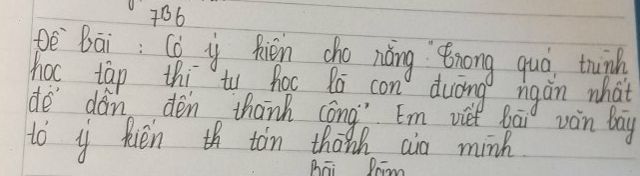 7B6
Đề bài : Có ý kiến cho rằng "trong quá trình
học tập thì tự học là con đường ngắn nhất
để dẫn đến thành công". Em viết bài văn bày
tỏ ý kiến th tán thành của mình.
Bài làm